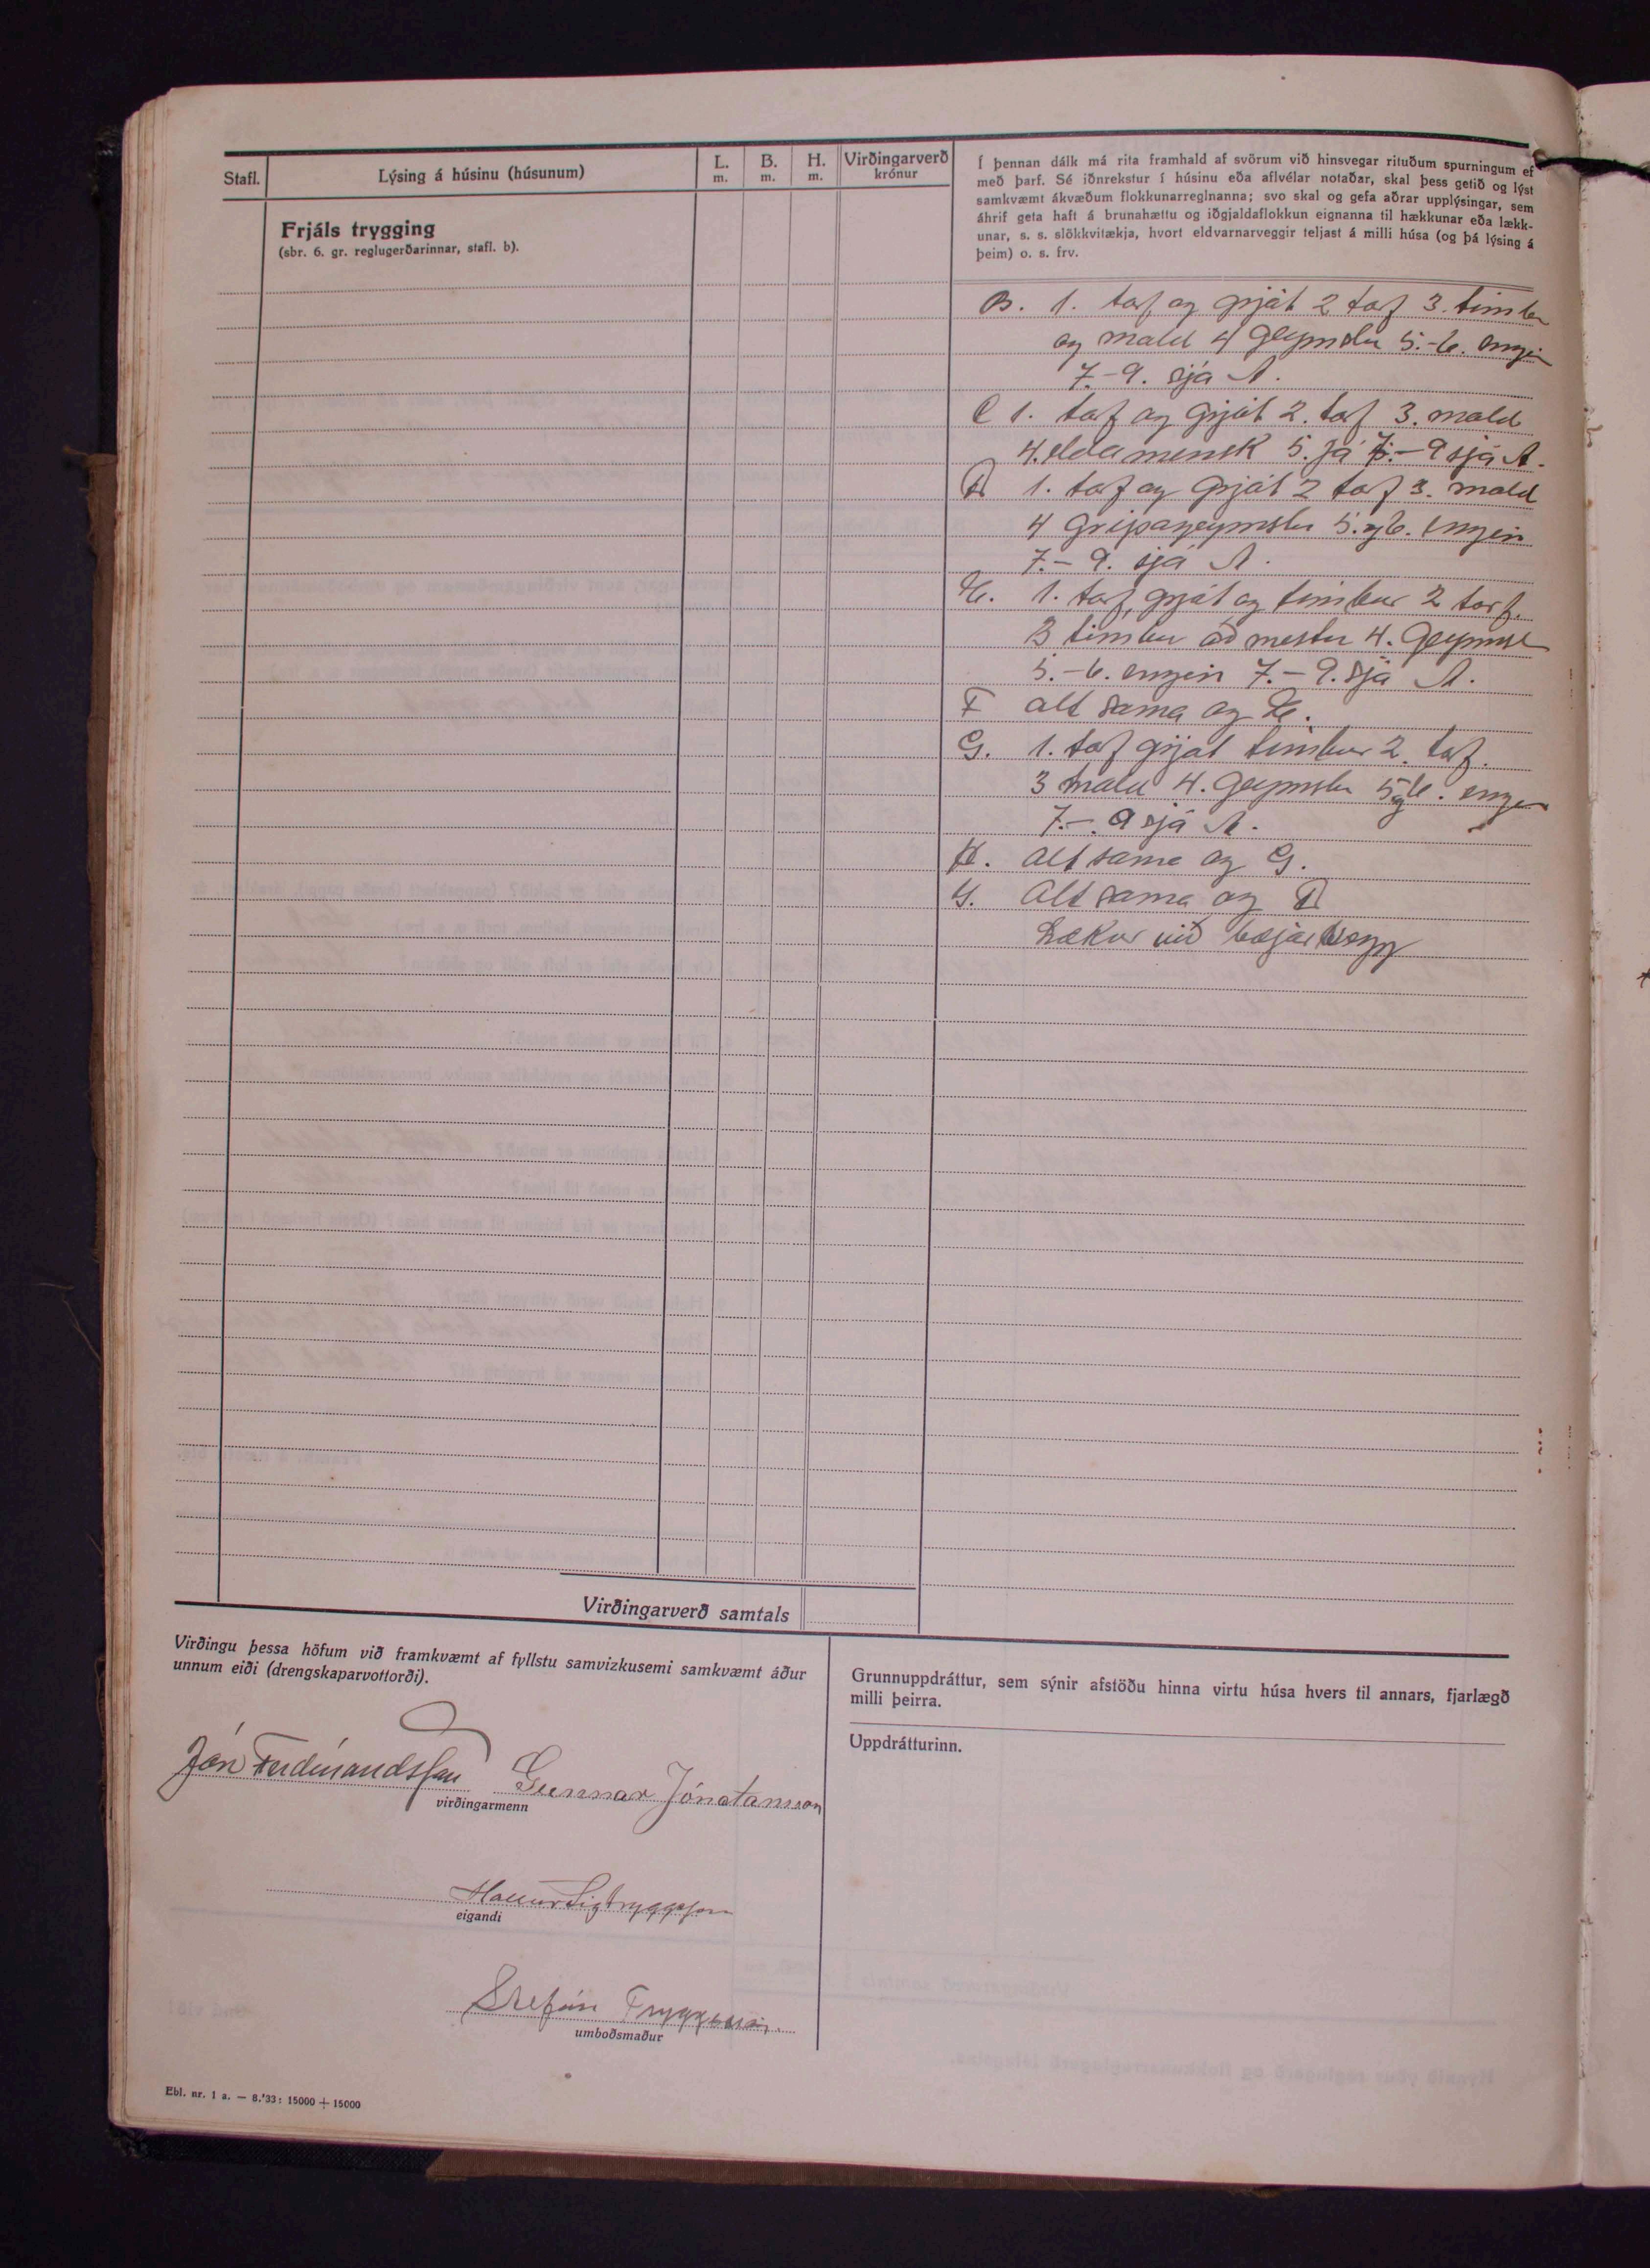 Stafl.
Lýsing á húsinu (húsunum)
L.
m.
B.
m.
H.
m.
Virðingarverð
krónur
Frjáls trygging
(sbr. 6. gr. reglugerðarinnar, stafl. b).
Í þennan dálk má rita framhald af svörum við hinsvegar rituðum spurningum ef
með þarf. Sé iðnrekstur í húsinu eða aflvélar notaðar, skal þess getið og lýst
samkvæmt ákvæðum flokkunarreglnanna; svo skal og gefa aðrar upplýsingar, sem
áhrif geta haft á brunahættu og iðgjaldaflokkun eignanna til hækkunar eða lækk-
unar, s. s. slökkvitækja, hvort eldvarnarveggir teljast á milli húsa (og þá lýsing á
þeim) o. s. frv.
B. 1. torf og grjót 2 torf 3. timbur
og mold 4 geymslu 5.-6. engin
7.-9. sjá A.
C 1. torf og grjót 2. torf 3. mold
4. eldamensk 5. já 7.-9 sjá A.
D 1. torf og grjót 2 torf 3. mold
4 gripageymslu 5. og 6. engin
7.-9. sjá A.
E. 1. torf, grjót og timbur 2 torf.
3 timbur að mestu 4. geymsl
5.-6. engin 7.-9. sjá A.
F alt sama og E.
G. 1. torf grjót timbur 2. torf.
3 mold 4. geymslu 5 og 6. engin
7.-.9 sjá A.
H. alt sama og G.
Y. alt sama og D
Lækur við bæjarvegg
Virðingarverð samtals
Virðingu þessa höfum við framkvæmt af fyllstu samvizkusemi samkvæmt áður
unnum eiði (drengskaparvottorði).
Jón Ferdínandsson Gunnar Jónatansson
virðingarmenn
Hallur Sigtryggsson
eigandi
Stefán Tryggvason.
umboðsmaður
Grunnuppdráttur, sem sýnir afstöðu hinna virtu húsa hvers til annars, fjarlægð
milli þeirra.
Uppdrátturinn.
Ebl. nr. 1 a. — 8.'33: 15000 + 15000